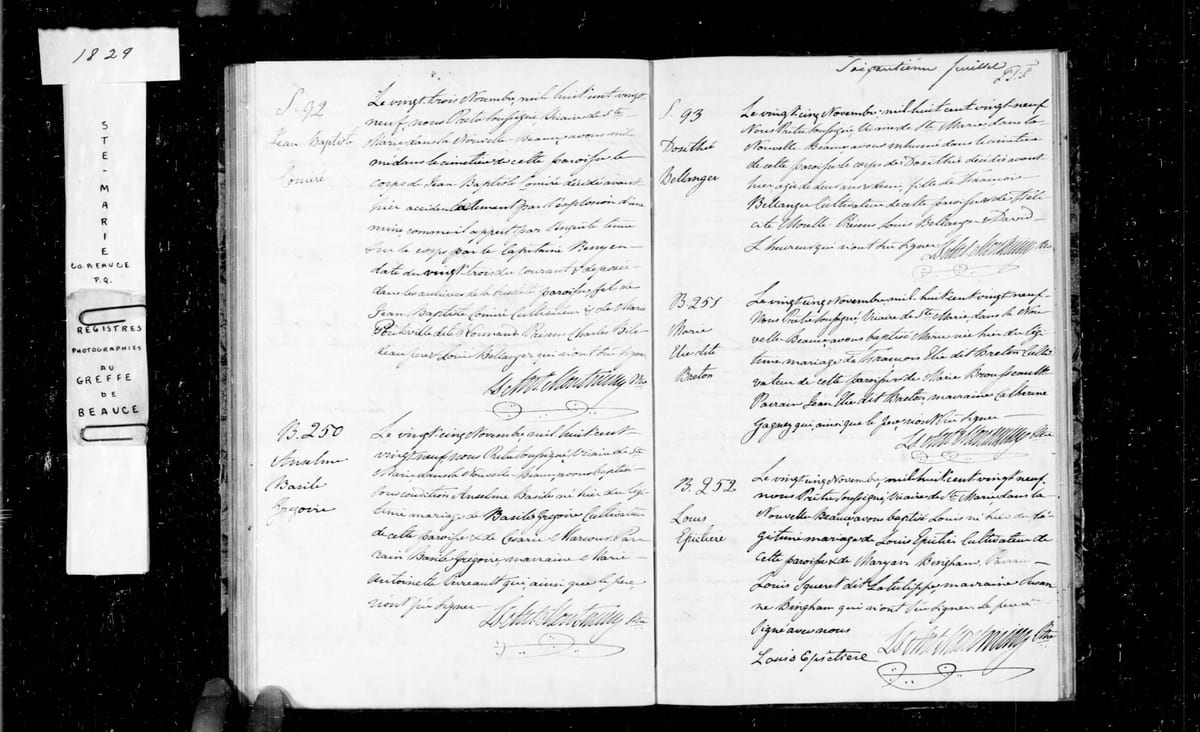 1829
STE-MARIE
CO. BEAUCE
P.Q.
REGISTRES
PHOTOGRAPHIES
AU
GREFFE
DE
BEAUCE
S. 92
Jean Baptiste
Comiré
Le vingt trois Novembre, mil huit cent vingt
neuf, nous Prêtre soussigné Vicaire de Ste
Marie dans la Nouvelle Beauce, avons inhu
mé dans le cimetière de cette paroisse le
corps de Jean Baptiste Comiré décédé avant
hier accidentalement par l'explosion d'une
mine, comme il appert par l'enquête tenue
sur le corps par le Capitaine en
date du vingt trois du courant & déposée
dans les archives de la paroisse, fils de
Jean Baptiste Comiré Cultivateur & de Marie
dite Normand Présens Charles Bilo
deau père Louis Bellanger qui n'ont sû signer
Ptre
B. 250
Anselme
Basile
Gregoire
Le vingt cinq Novembre, mil huit cent
vingt neuf, nous Prêtre soussigné, Vicaire de Ste
Marie dans la Nouvelle Beauce, avons baptisé
sous condition Anselme Basile né hier du légi
time mariage de Basile Gregoire Cultivateur
de cette paroisse & de Marcoux Par
rain Basile Grégoire, marraine Marie
Antoinette qui, ainsi que le père,
n'ont sû signer—
Ptre
Soixantième feuillet
S. 93
Dosithé
Bellanger
Le vingt cinq Novembre, mil huit cent vingt neuf
Nous Prêtre soussigné, Vicaire de Ste Marie, dans la
Nouvelle Beauce avons inhumé dans le cimetière
de cette paroisse le corps de Dosithée décédée avant
hier agée de deux ans & demi, fille de François
Bellanger Cultivateur de cette paroisse & de Féli
cité Présens Louis Bellanger & David
L'heureux qui n'ont sû signer
Ptre
B. 251
Marie
Elie dite
Breton
Le vingt cinq Novembre, mil huit cent vingt neuf
Nous Prêtre soussigné, Vicaire de Ste Marie dans la Nou
velle Beauce, avons baptisé Marie née hier du légi
time mariage de François Elie dit Breton Culti
vateur de cette paroisse & de Marie Brousseault
Parrain Jean Elie dit Breton, marraine Catherine
Gagné qui, ainsi que le père, n'ont sû signer—
Ptre
B. 252
Louis
Epictiere
Le vingt cinq Novembre, mil huit cent vingt neuf,
nous Prêtre soussigné, Vicaire de Ste Marie dans la
Nouvelle Beauce avons baptisé Louis né hier du lé
gitime mariage de Louis Cultivateur de
cette paroisse & de Maryan Bingham, Parrain
Louis dit Latulippe, marraine Susan
ne Bingham qui n'ont sû signer le père a
signé avec nous
Louis Epictiere
Ptre